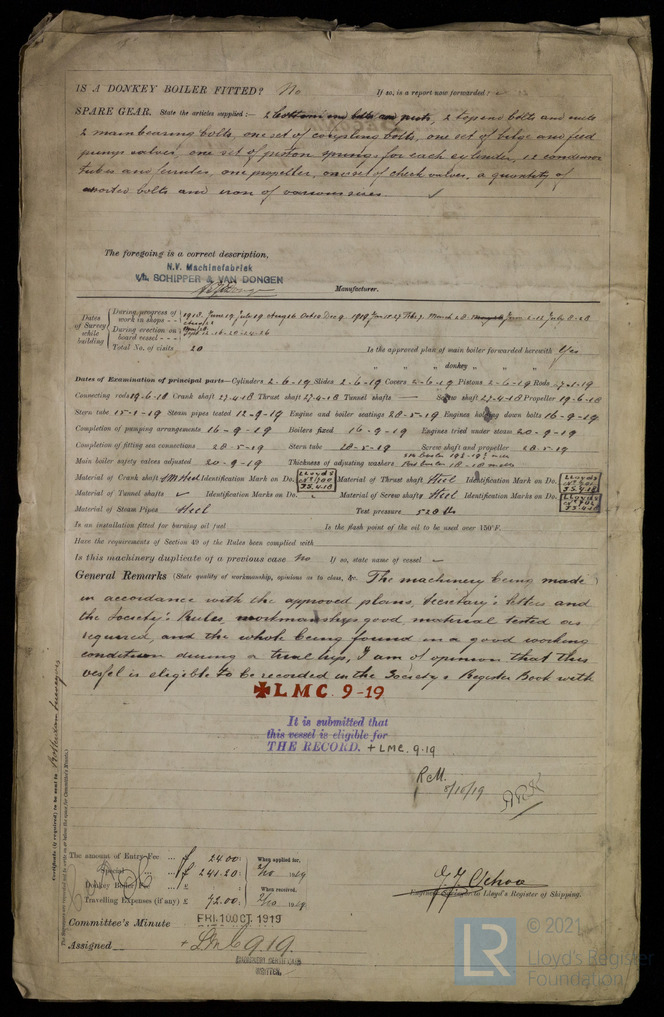 IS A DONKEY BOILER FITTED? No If so, is a report now forwarded?
SPARE GEAR. State the articles supplied:— 2 bottom end bolts and nuts, 2 top end bolts and nuts
2 main bearing bolts, one set of coupling bolts, one set of bilge and feed
pumps valves, one set of piston springs for each cylinder, 12 condenser
tubes and ferrules, one propeller, one set of check valves, a quantity of
assorted bolts and iron of various sizes. ✓
The foregoing is a correct description,
N.V. Machinefabriek
v/h. SCHIPPER & VAN DONGEN
Manufacturer.
Dates of Survey while building
During progress of work in shops - - 1918. June 19 July 19
During erection on board vessel - - -
Total No. of visits 20
Is the approved plan of main boiler forwarded herewith Yes
" " " donkey " " "
Dates of Examination of principal parts—Cylinders 2-6-19 Slides 2-6-19 Covers 2-6-19 Pistons 2-6-19 Rods
Connecting rods 19-6-18 Crank shaft 27-4-18 Thrust shaft 27-4-18 Tunnel shafts — Screw shaft 27-4-18 Propeller 19-6-18
Stern tube 15-1-19 Steam pipes tested 12-9-19 Engine and boiler seatings 28-5-19 Engines holding down bolts 16-9-19
Completion of pumping arrangements 16-9-19 Boilers fixed 16-9-19 Engines tried under steam 20-9-19
Completion of fitting sea connections 28-5-19 Stern tube 28-5-19 Screw shaft and propeller 28-5-19
Main boiler safety valves adjusted 20-9-19 Thickness of adjusting washers
Material of Crank shaft Identification Mark on Do. LLOYDS Material of Thrust shaft Steel Identification Mark on Do. LLOYDS
Material of Tunnel shafts ✓ Identification Marks on Do. ✓ Material of Screw shafts Steel Identification Marks on Do. LLOYDS
Material of Steam Pipes Steel Test pressure 520 lbs
Is an installation fitted for burning oil fuel Is the flash point of the oil to be used over 150°F.
Have the requirements of Section 49 of the Rules been complied with
Is this machinery duplicate of a previous case No If so, state name of vessel ✓
General Remarks (State quality of workmanship, opinions as to class, &c. The machinery being made
in accordance with the approved plans, Secretary's letters and
the Society's Rules, workmanship good, material tested as
required, and the whole being found in a good working
condition during a trial trip, I am of opinion that this
vessel is eligible to be recorded in the Society's Register Book with
✠LMC. 9-19
It is submitted that
this vessel is eligible for
THE RECORD. + LMC. 9.19
R.M.
8/10/19
Certificate (if required) to be sent to Rotterdam Surveyors
The amount of Entry Fee ... £ 24.00 When applied for,
Special ... £ 241.20
Donkey Boiler Fee ... £ When received,
Travelling Expenses (if any) £ 72.00
Engineer Surveyor to Lloyd's Register of Shipping.
Committee's Minute FRI. 10 OCT. 1919
Assigned + LMC 9.19.
© 2021
LR
Lloyd's Register
Foundation